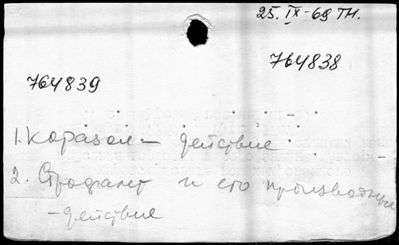 25. IX-69 тн.
764838
764839
1. Коразол – действие
2. Строфант и его производные
– действие